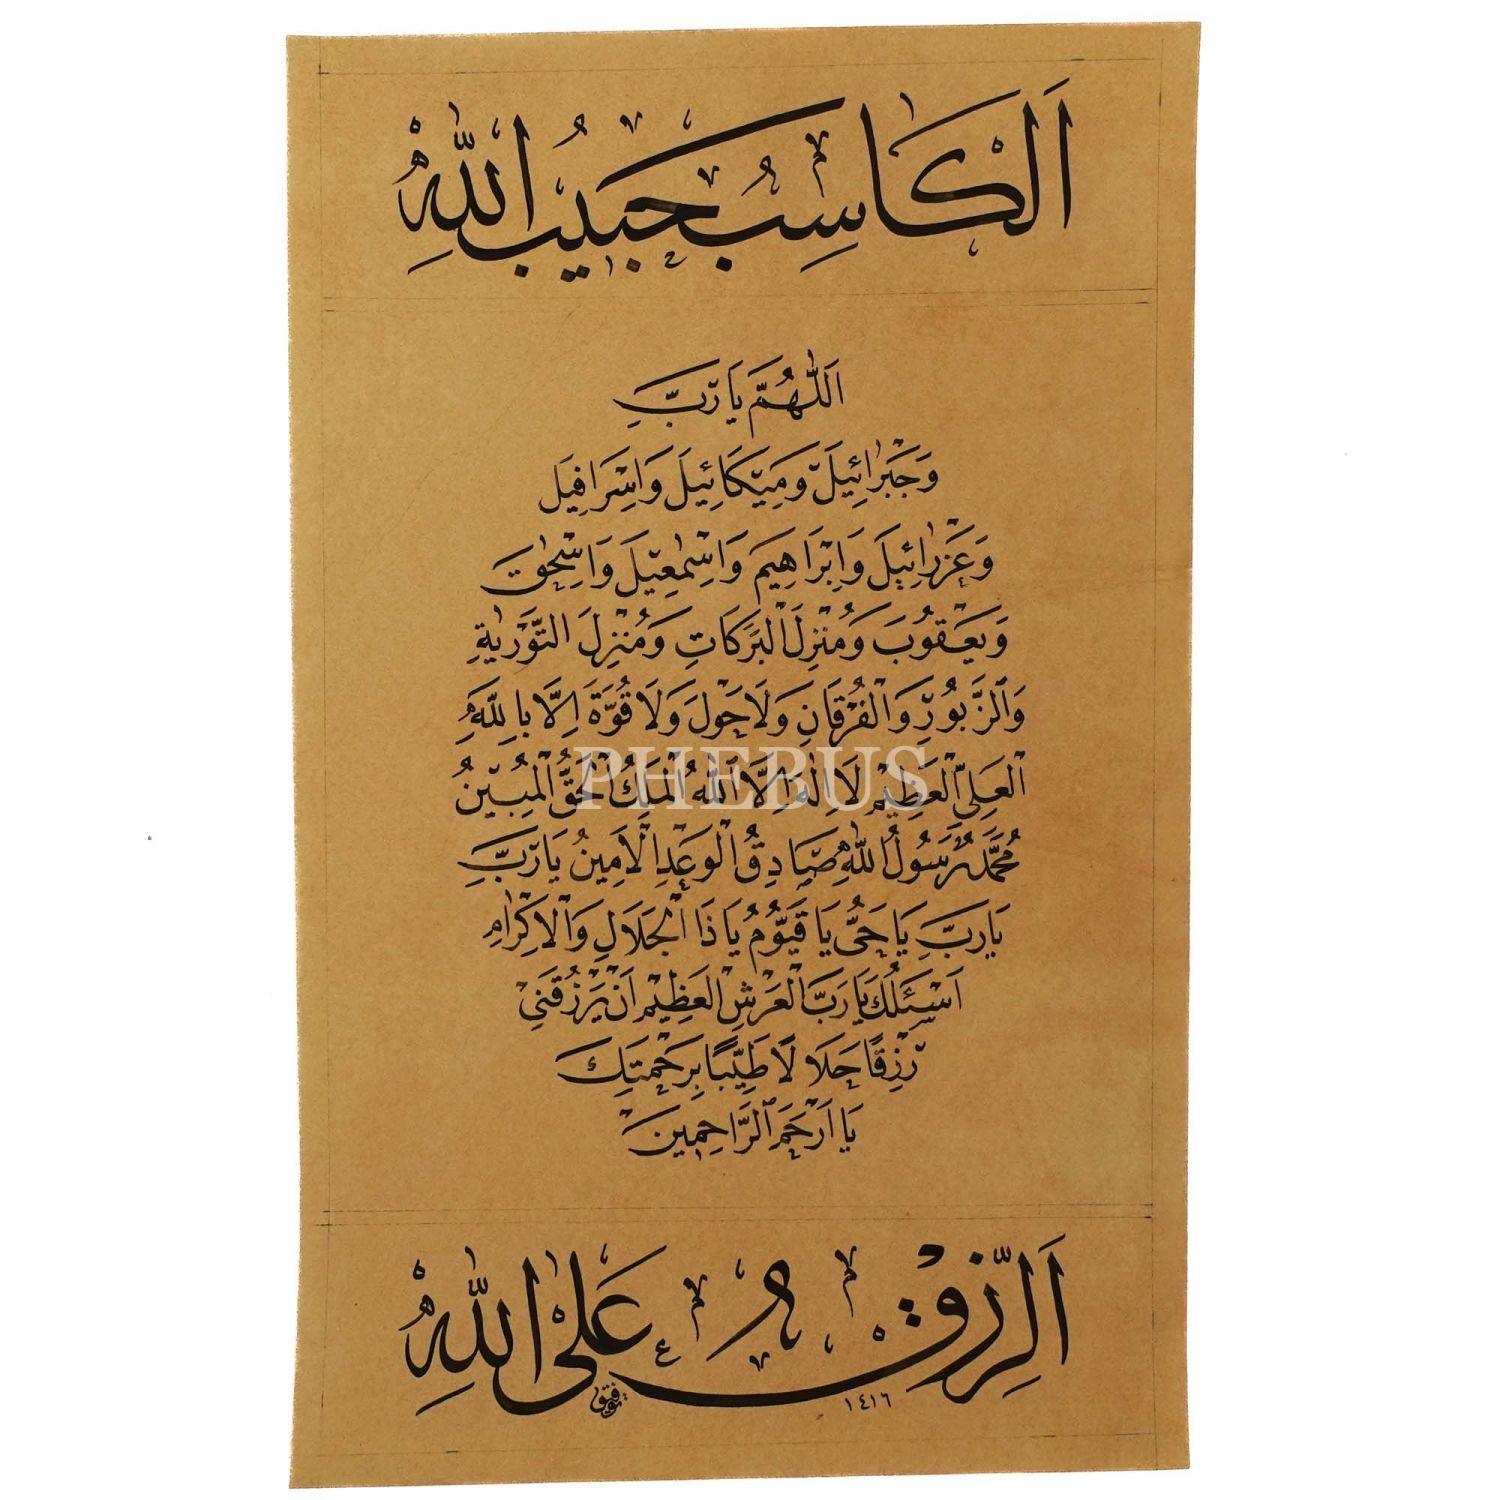 اَلْكَاسِبُ حَبِيبُ اللّٰهِ
اَللّٰهُمَّ يَا رَبِّ
وَجَبْرَائِيلَ وَمِيكَائِيلَ وَاِسْرَافِيلَ
وَعَزْرَائِيلَ وَاِبْرَاهِيمَ وَاِسْمٰعِيلَ وَاِسْحٰقَ
وَيَعْقُوبَ وَمُنْزِلَ الْبَرَكَاتِ وَمُنْزِلَ التَّوْرٰيةِ
وَالزَّبُورِ وَالْفُرْقَانِ وَلَا حَوْلَ وَلَا قُوَّةَ اِلَّا بِاللّٰهِ
الْعَلِيِّ الْعَظِيمِ لَا اِلٰهَ اِلَّا اللّٰهُ الْمَلِكُ الْحَقُّ الْمُبِينُ
مُحَمَّدٌ رَسُولُ اللّٰهِ صَادِقُ الْوَعْدِ الْاَمِينُ يَا رَبِّ
يَا رَبِّ يَا حَىُّ يَا قَيُّومُ يَا ذَا الْجَلَالِ وَالْاِكْرَامِ
اَسْئَلُكَ يَا رَبَّ الْعَرْشِ الْعَظِيمِ اَنْ يَرْزُقَنِي
رِزْقًا حَلَالًا طَيِّبًا بِرَحْمَتِكَ
يَا اَرْحَمَ الرَّاحِمِينَ
اَلرِّزْقُ عَلَى اللّٰهِ
توفيق
١٤١٦
PHEBUS